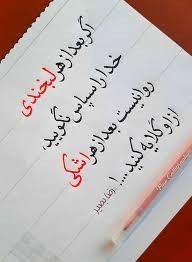 اگر بعد از هر لبخندی
خدا را سپاس نگویید
روا نیست بعد از هر اشکی
از او گلایه کنید...!